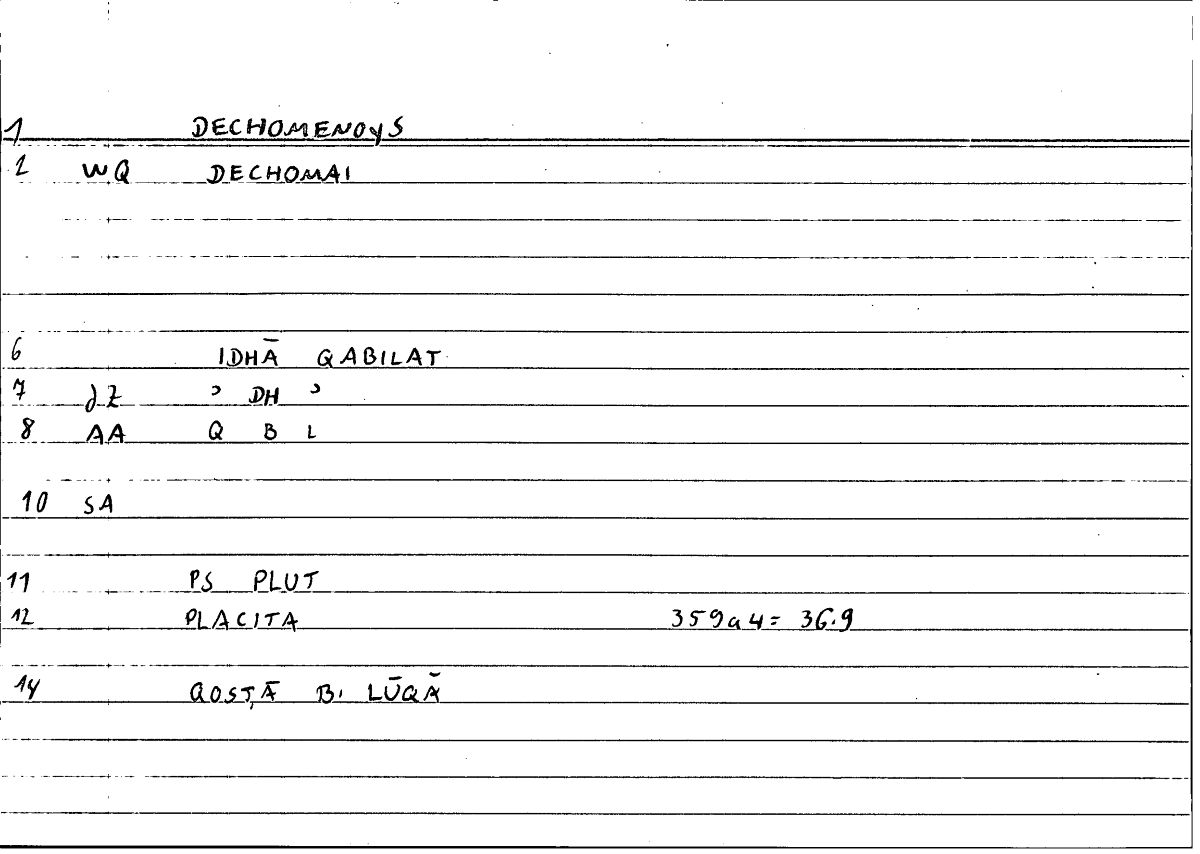 1 DECHOMENOyS
2 WQ DECHOMAI
6 IDHĀ QABILAT
7 JZ ʾ DH ʾ
8 AA Q B L
10 SA
11 PS PLUT
12 PLACITA 359a4 = 36.9
14 QOSṬĀ B. LŪQĀ